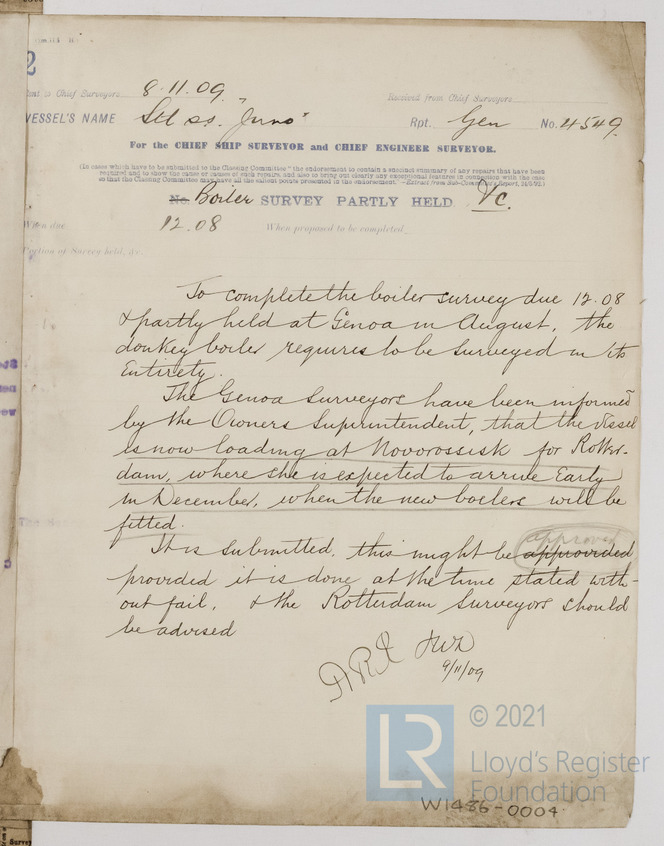 2
Sent to Chief Surveyors 8.11.09.
Received from Chief Surveyors
VESSEL'S NAME Stl ss. "Juno" Rpt. Gen No. 4549.
For the CHIEF SHIP SURVEYOR and CHIEF ENGINEER SURVEYOR.
(In cases which have to be submitted to the Classing Committee "the endorsement to contain a succinct summary of any repairs that have been
required and to show the cause or causes of such repairs, and also to bring out clearly any exceptional features in connection with the case
so that the Classing Committee may have all the salient points presented in the endorsement."—Extract from Sub-Committee's Report,
No. Boiler SURVEY PARTLY HELD Vc.
When due 12.08 When proposed to be completed
Portion of Survey held, &c.
To complete the boiler survey due 12.08
& partly held at Genoa in August, the
donkey boiler requires to be surveyed in its
Entirety.
The Genoa Surveyors have been informed
by the Owners Superintendent, that the Vessel
is now loading at Novorossisk for Rotter-
dam, where she is expected to arrive Early
in December, when the new boilers will be
fitted.
approved
It is submitted, this might be approvided
provided it is done at the time stated with-
out fail, & the Rotterdam Surveyors should
be advised
9/11/09
LR
© 2021
Lloyd's Register
Foundation
W1486-0004